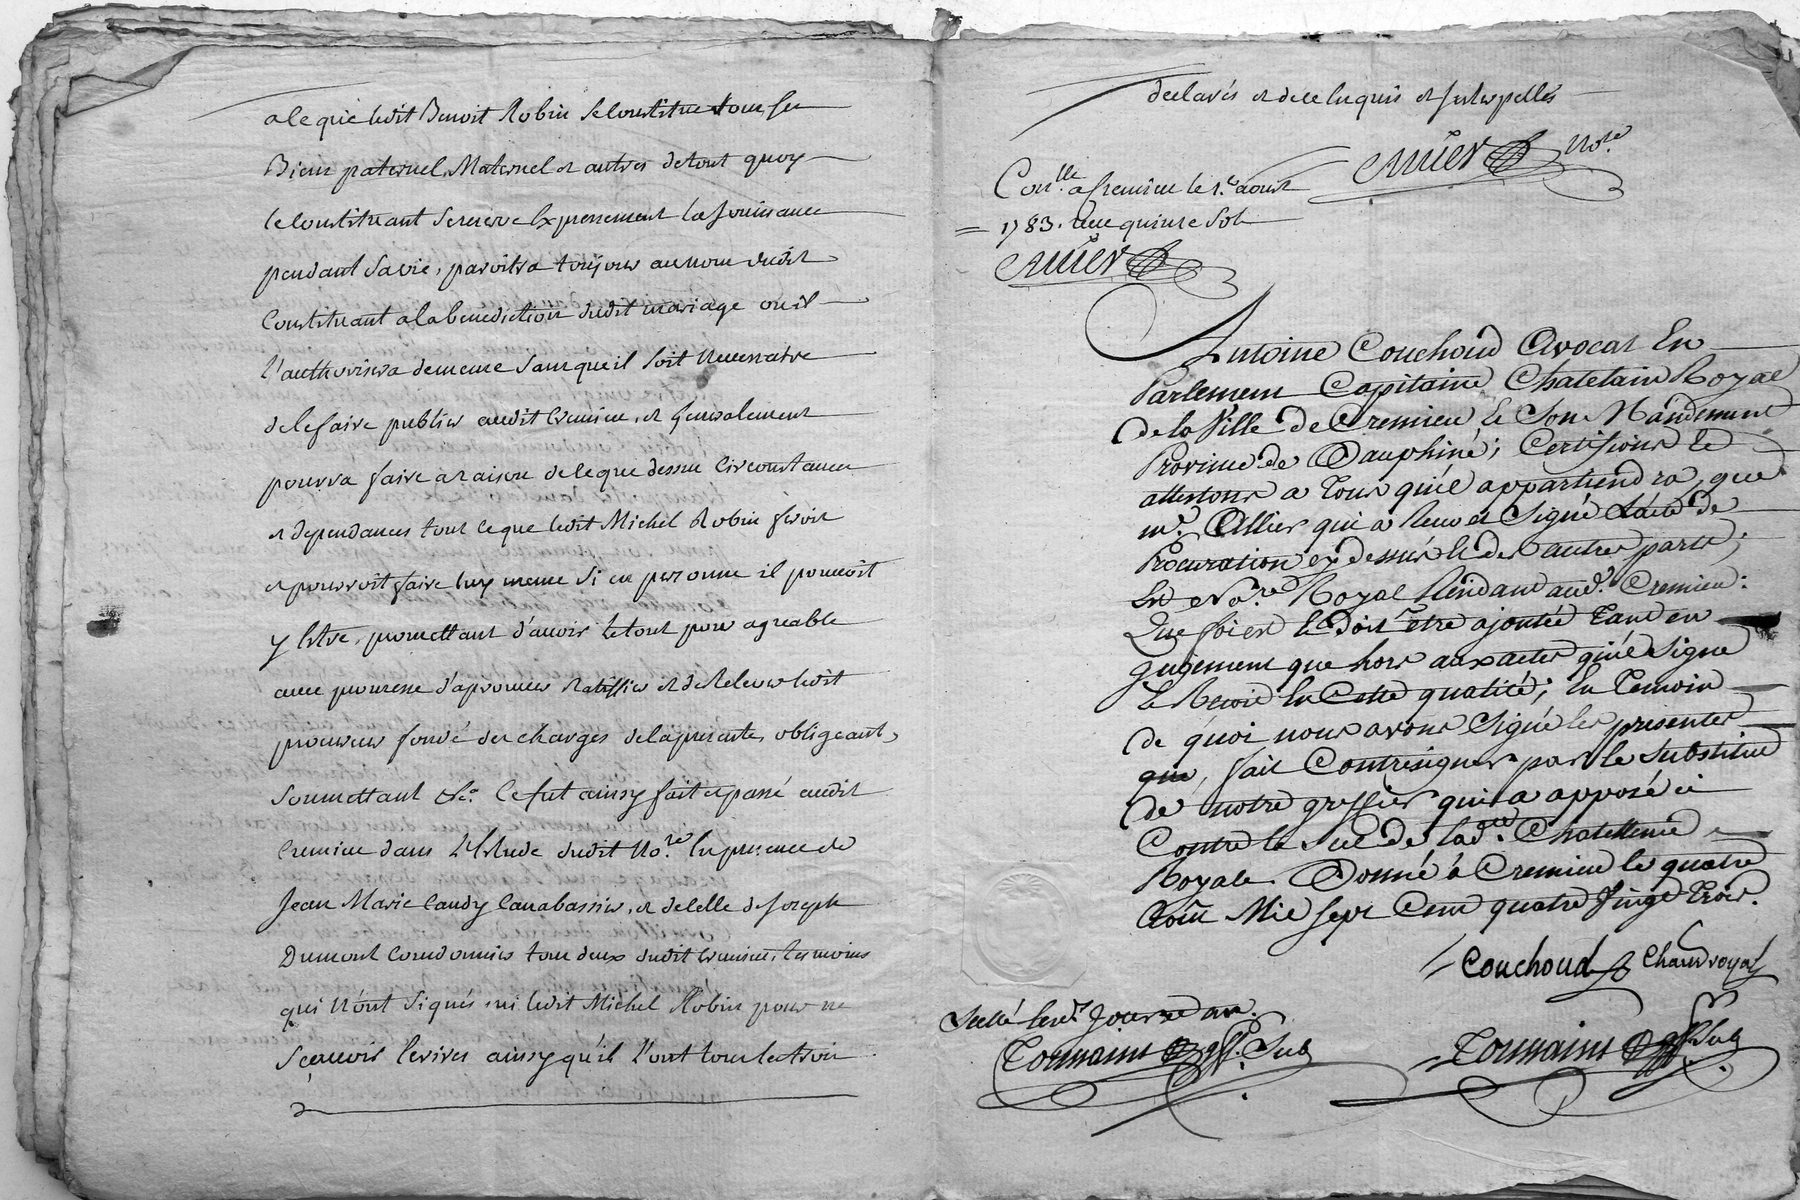 a le que ledit Benoit Robin se constitue tous ses
Biens paternel, Maternel et autres de tout quoy
le constituant se reserve Expressement la Jouissance
pendant sa vie, paroitra toujours au nom dudit
Constituant a la benediction dudit mariage ou il
l'authorisera de meme sans qu'il soit necessaire
de le faire publier audit Cremieu, et generalement
pourra faire a raison de ce que dessus circonstances
et dependances tout ce que ledit Michel Robin feroit
et pourroit faire luy meme si en personne il pouvoit
y Estre, promettant d'avoir le tout pour agreable
avec promesse d'aprouver Ratiffier et de Relever ledit
procureur fondé des charges de la presente, obligeant,
soumettant &c.a Ce fut ainsy fait et passé audit
Cremieu dans L'Estude dudit No.re En presence de
Jean Marie Caudy Canabassier, et de celle de Joseph
Dumont Cordonnier tous deux dudit Cremieu, temoins
qui n'ont signés ni ledit Michel Robin pour ne
sçavoir Ecrire ainsy qu'il l'ont tous les trois
declarés et de ce Enquis et Interpellés
No.re
Con.lle a Cremieu le 1.er aoust
= 1783. Reçu quinze sols
Antoine Couchoud Avocat En
Parlement Capitaine Chatelain Royal
de la Ville de Cremieu & Son Mandement
Province de Dauphiné; Certifions &
attestons a Tous qu'il appartiendra, que
m.e Allier qui a Recu et Signé L'acte de
Procuration cy dessus & des autres parts;
Est No.re Royal Résidant aud.t Cremieu:
Que foi en & doit être ajoutée Tant en
gugement que hors aux actes qu'il Signe
& Recoit En Cette qualité; En Temoin
de quoi nous avons Signé les presentes
que, fait Contresigner par le Substitut
de notre greffier qui a apposé ci
Contre le Scel de lad.te Chatellenie
Royale. Donné à Cremieu le quatre
Août Mil Sept Cent quatre Vingt Trois.
Couchoud Chat. royal
Scellé lesd.ts Jour et an.
Tournains gff. Sub
Tournains gff. Sub